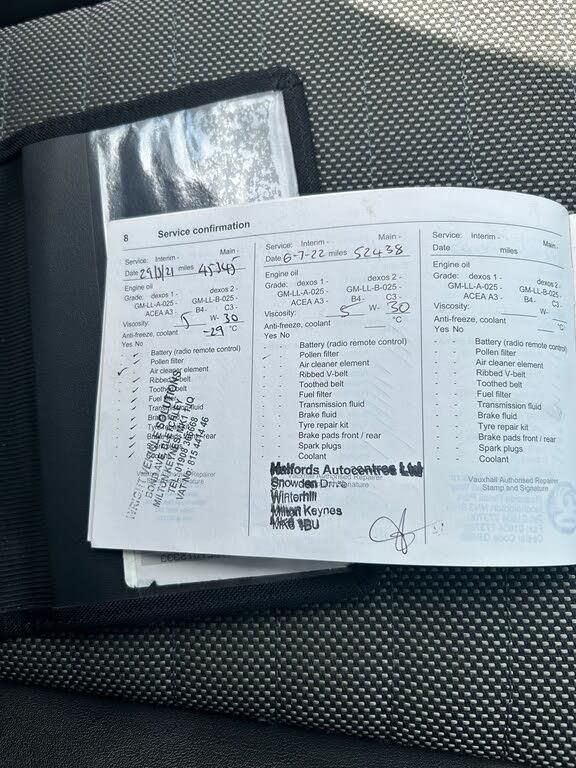 8 Service confirmation
Service: Interim - Main -
Date 29/ /21 miles
Engine oil
Grade: dexos 1 - dexos 2 -
GM-LL-A-025 - GM-LL-B-025 -
ACEA A3 - B4 - C3 -
Viscosity: 5 W- 30
Anti-freeze, coolant -29 °C
Yes No
Battery (radio remote control)
Pollen filter
Air cleaner element
Ribbed V-belt
Toothed belt
Fuel
fluid
BOND AVE
MILTON KEYNES MK1 1
TEL: 01908
VAT No: 815 44 46
Repairer
Signature
Service: Interim - Main -
Date 6-7-22 miles 52438
Engine oil
Grade: dexos 1 - dexos 2 -
GM-LL-A-025 - GM-LL-B-025 -
ACEA A3 - B4 - C3 -
Viscosity: 5 W- 30
Anti-freeze, coolant °C
Yes No
Battery (radio remote control)
Pollen filter
Air cleaner element
Ribbed V-belt
Toothed belt
Fuel filter
Transmission fluid
Brake fluid
Tyre repair kit
Brake pads front / rear
Spark plugs
Coolant
Halfords Autocentres Ltd
Snowden Drive
Winterhill
Milton Keynes
Service: Interim - Main -
Date miles
Engine oil
Grade: dexos 1 - dexos 2 -
GM-LL-A-025 - GM-LL-B-025 -
ACEA A3 - B4 - C3 -
Viscosity: W-
Anti-freeze, coolant °C
Yes No
Battery (radio remote control)
Pollen filter
Air cleaner element
Ribbed V-belt
Toothed belt
Fuel filter
Transmission fluid
Brake fluid
Tyre repair kit
Brake pads front / rear
Spark plugs
Coolant
Vauxhall Authorised Repairer
Stamp and Signature